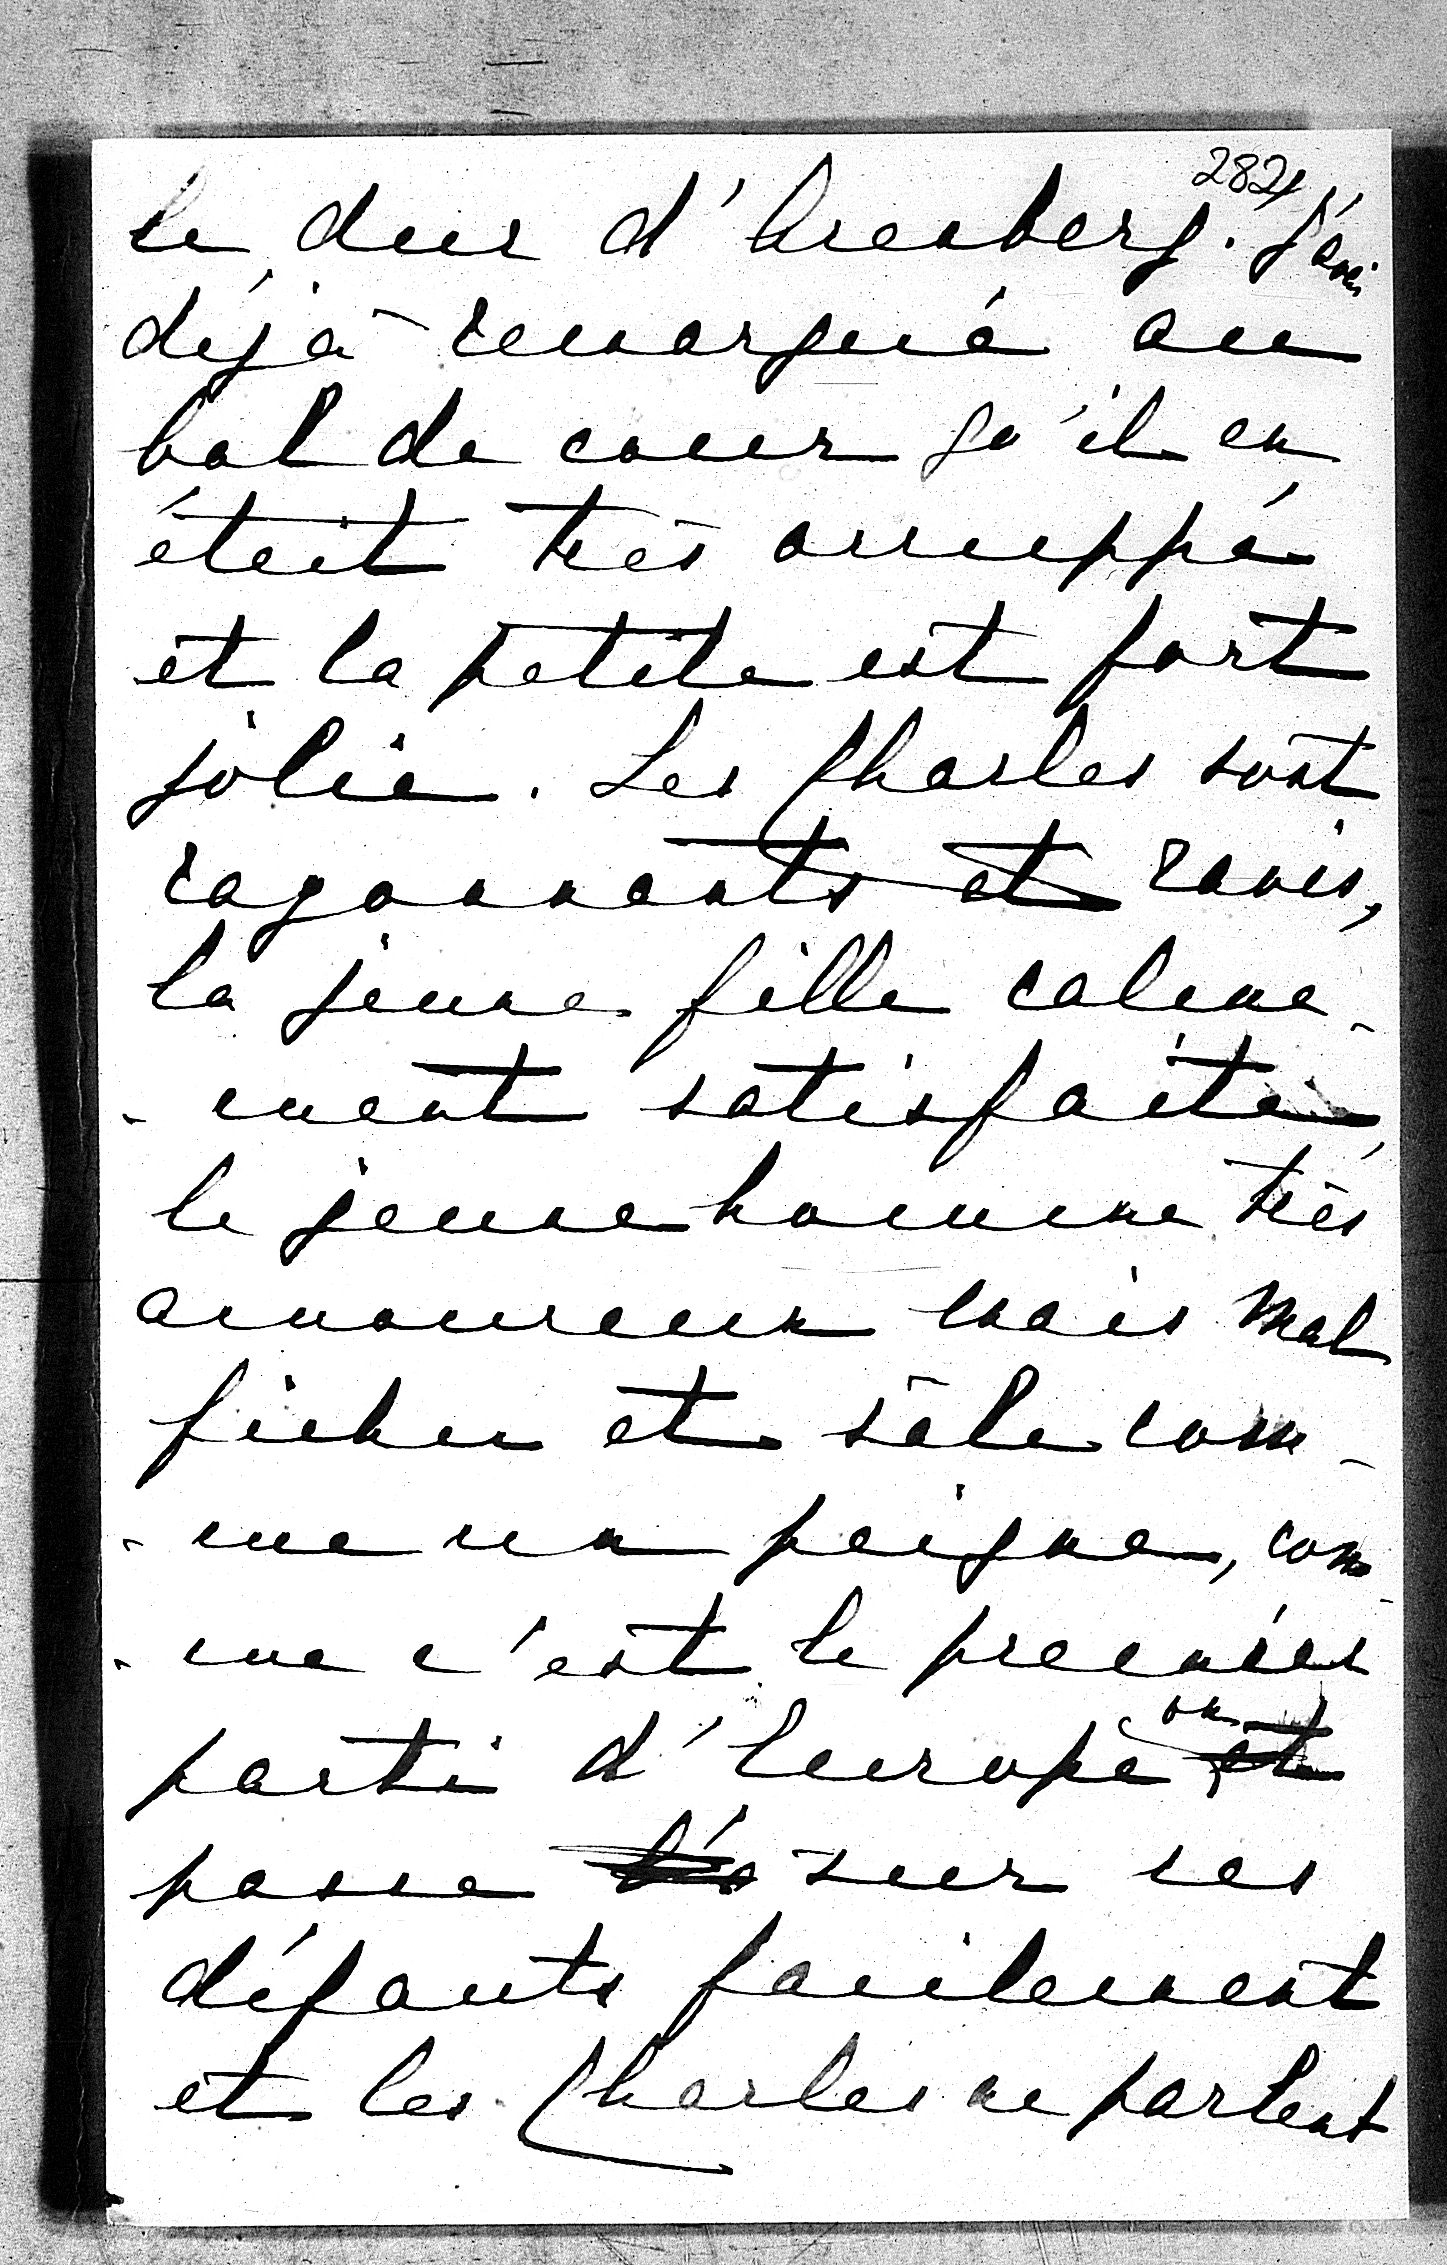 2824
le duc d'Arenberg. J'avais
déjà remarqué au
bal de cour qu'il en
était très occuppé
et la petite est fort
jolie. Les Charles sont
rayonnants et ravis,
la jeune fille calme-
-ment satisfaite,
le jeune homme très
amoureux mais mal
fichu et sâle com-
-me un peigne, com-
-me c'est le premier
parti d'Europe, on et
passe sur ses
défauts facilement
et les Charles ne parlent